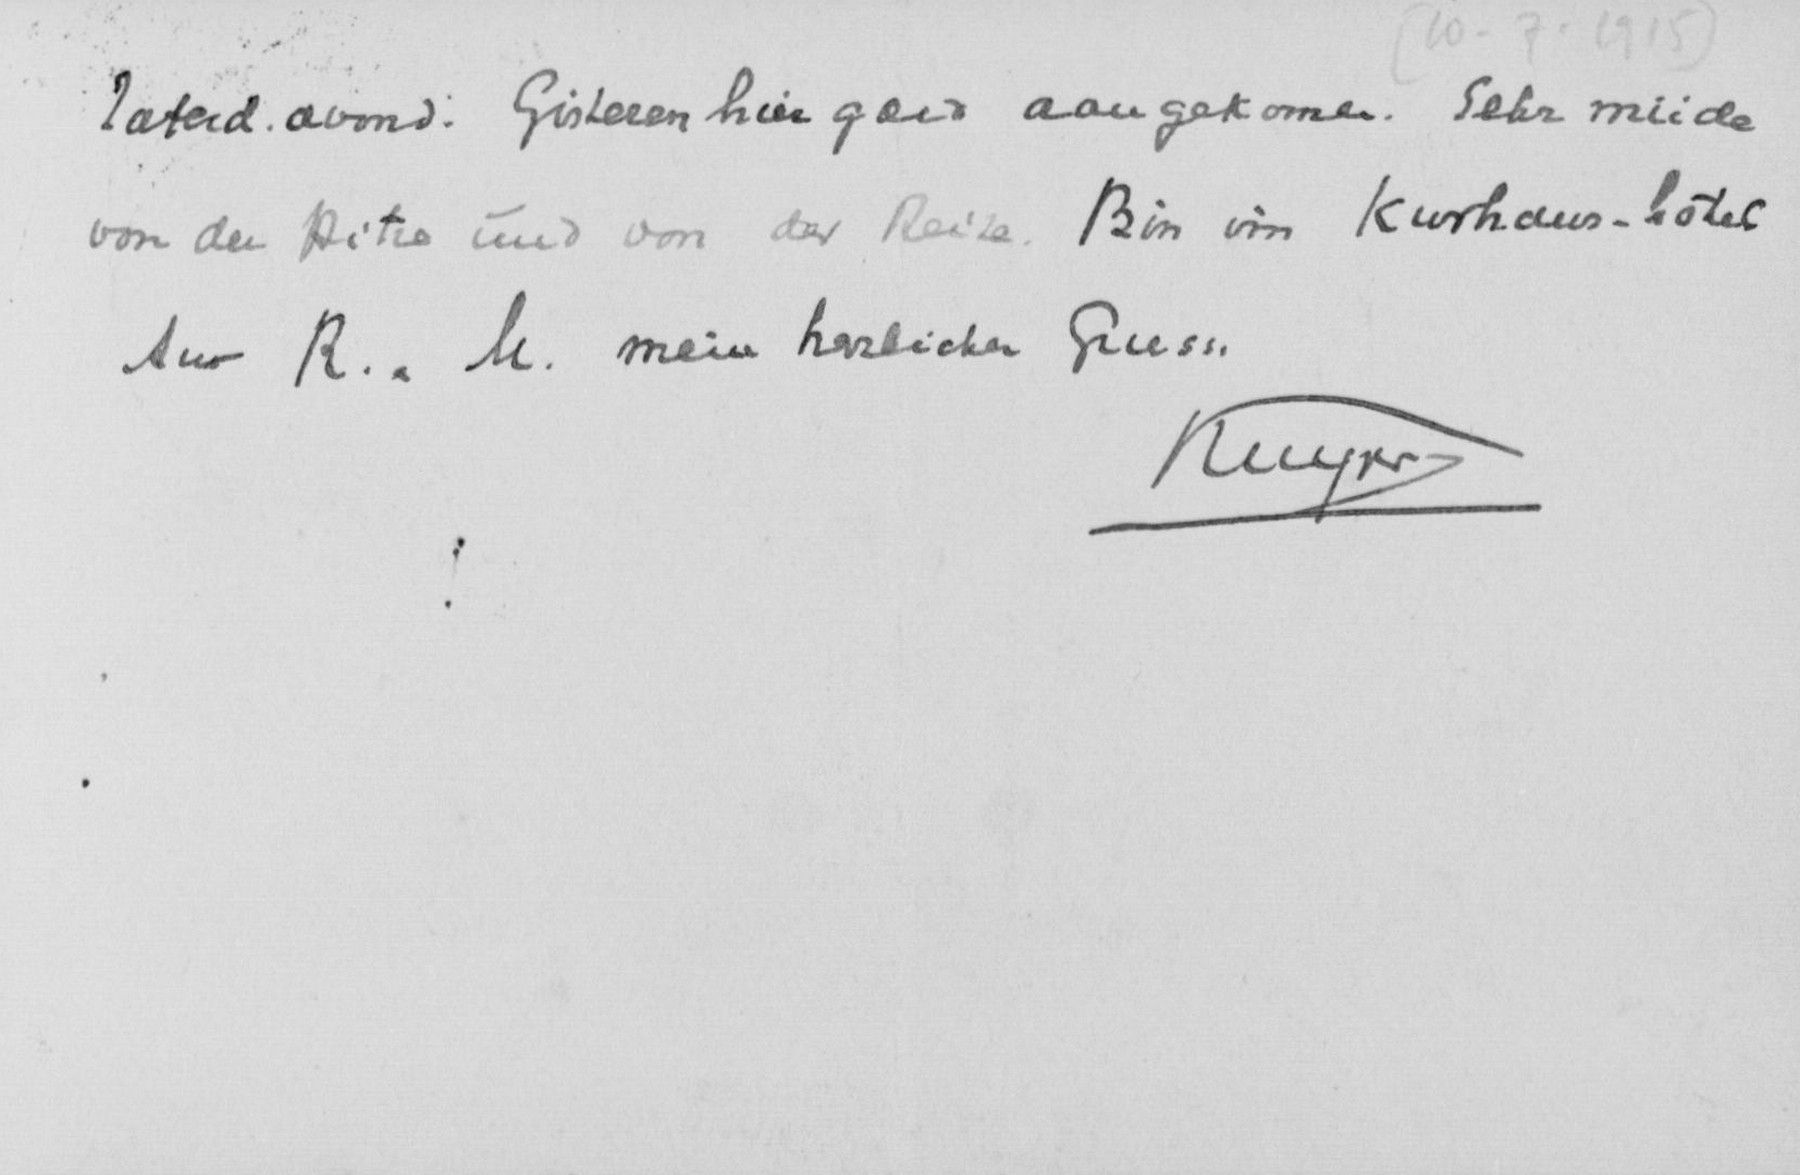 (10-7-1915)
Zaterd. avond. Gisteren hier goed aangekomen. Sehr müde
von der Hitze und von der Reise. Bin im Kurhaus-hôtel
R. . M. mein herzlicher Gruss.
Kuyper